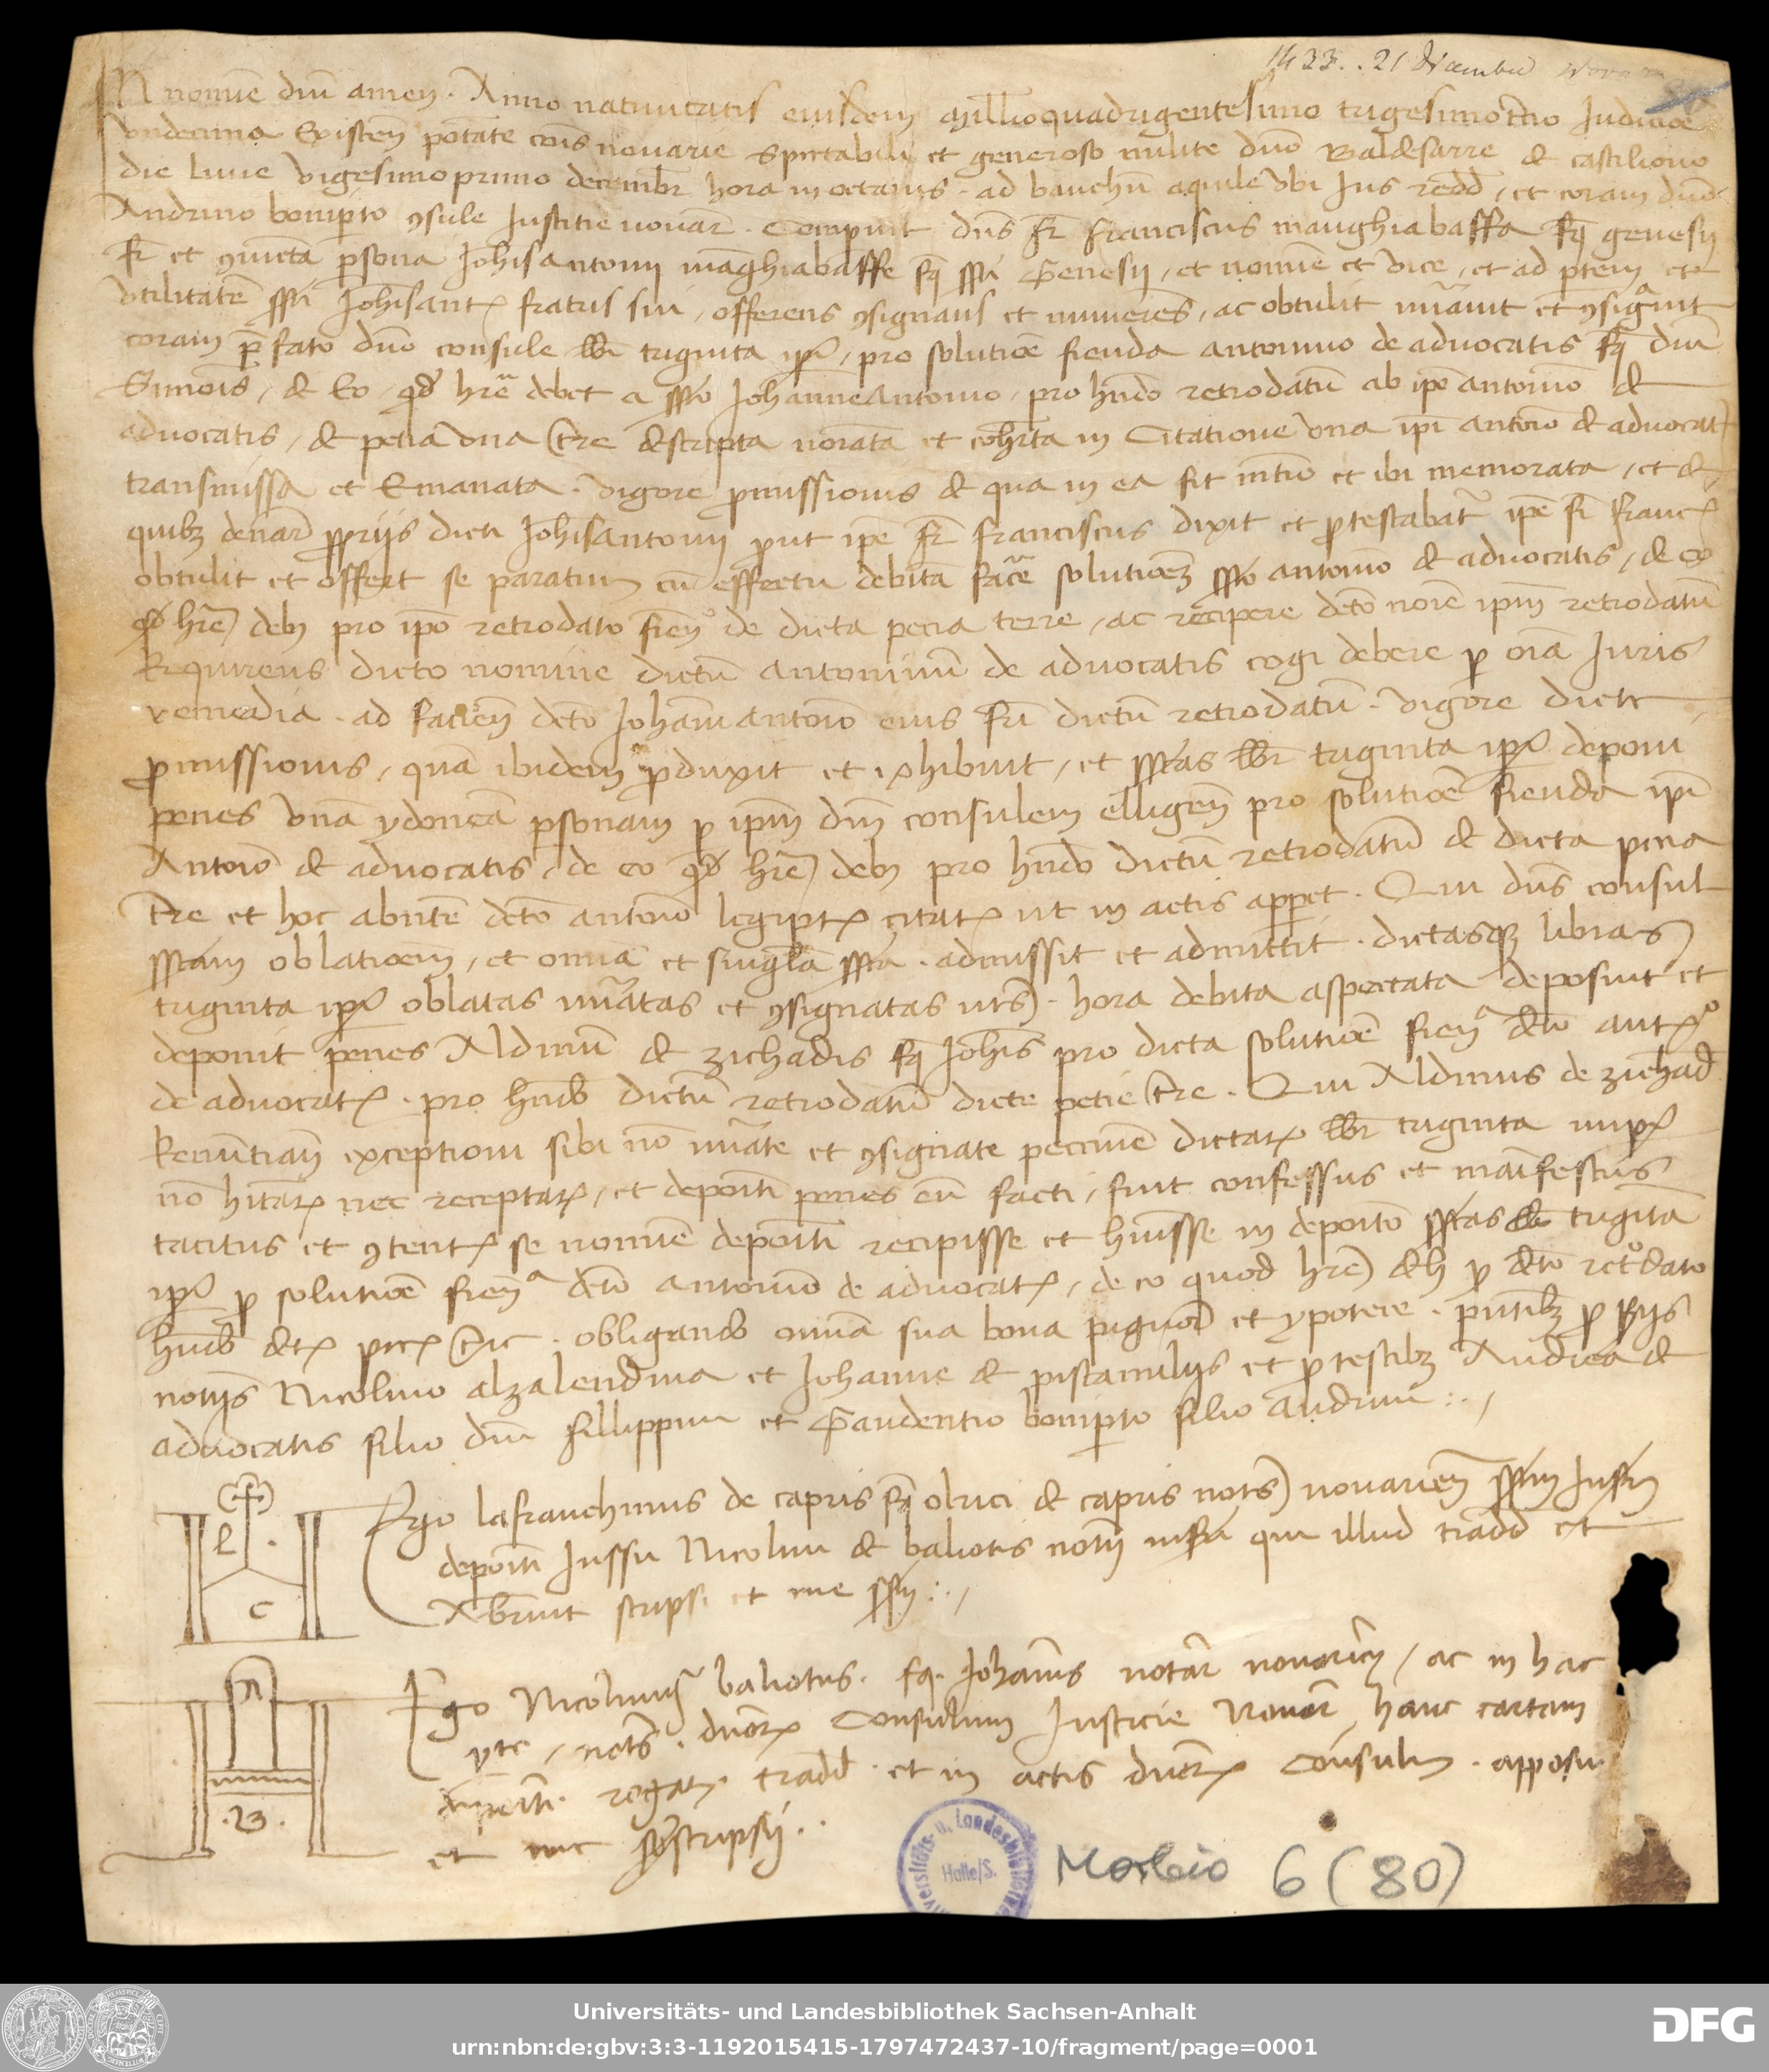 1433. . 21 Dicembre Novara
IN nomine dni amen. Anno natiuitatis eiusdem Millioquadrigentesimo trigesimotertio Indictioe
vndecima Existen potate cois nouarie Spectabili et generoso milite dno Baldesarre de castiliono
die lune vigesimoprimo decembr hora in octanis. ad banchu aquile vbi Jus redd, et coram dno
Andrino boniperto 9sule Justitie nouar. Comparuit dns fr franciscus manghiabaffa fq genesij
fr et 9iucta persona Johisantonij manghiabaffe fq sti Genesij, et nomine et vice, et ad partem et
vtilitate sti Johisant fratris sui, offerens 9signans et numerens, ac obtulit nuauit et 9signauit
coram prefato dno consule libr triginta iper, pro solutioe fienda antonino de aduocatis fq dni
Simois, de Eo, quod hre debet a sto Johanneantonio, pro hndo retrodatu ab ipo antonino de
aduocatis, de petia vna tre descripta noiata et cohrta in Citatione vna ipi antonio de aduocat
transmissa et Emanata. vigore promissionis de qua in ea fit mtio et ibi memorata, et de
quibz denar proprijs dicti Johisantonij prout ipe fr franciscus dixit et protestabat ipe fr franc
obtulit et offert se paratum cu effectu debita facere solutioez sto antonio de aduocatis, de eo
quod hre deb3 pro ipo retrodato fien de dicta petia terre, ac recipere dcto noie ipm retrodatu
Requirens dicto nomine dictu antoninum de aduocatis cogi debere p oia Juris
remedia. ad facien dcto Johaniantonio eius fri dictu retrodatu. vigore dicte
promissionis, qua ibidem produxit et exhibuit, et stas libr triginta iper deponi
penes vna ydonea personam p ipm dnm consulem elligen pro solutioe fienda ipi
Antonio de aduocatis, de eo quod hre deb3 pro hndo dictu retrodatu de dicta petia
tre et hoc absnte dcto antonio legiptt citat ut in actis apparet. Qui dns consul
stam oblatioem, et omnia et singula sta. admissit et admittit. dictasqz libras
triginta iper oblatas nuatas et 9signatas uts. hora debita aspectata deposuit et
deponit penes Aldinu de zichadis fq Johis pro dicta solutioe fien dcto anto
de aduocat. pro hndo dictu retrodatu dicte petie tre. Qui Aldinus de zichad
Renutian exceptioni sibi no nuate et 9signate peccunie dictar libr triginta imper
no hitar nec receptar, et depoiti penes eu facti, fuit confessus et manifestus
tacitus et 9tent se nomine depoiti recipisse et hiusse in depoito stas libr triginta
iper p solutioe fien dcto antonio de aduocat, de eo quod hre deb3 p dcto retrodato
hndo dct petie tre. obligando omnia sua bona pignori et ypotece. pntibz pro secundis
notijs Nicolino alzalendina et Johanne de pistamilijs et pro testibz Andrea de
aduocatis filio dni fillippini et Gaudentio boniperto filio andrini :.,
Ego lafranchinus de capris fq olrici de capris nots nouarien stum Instrum
depoiti Jussu Nicolini de baliotis notij infra qui illud tradd et
Abreuit scripsi et me ssi :.,
L C
Ego Nicolinus baliotus. fq. Johanis notar nouarien, ac in hac
pte, nots. duor Consulum Justicie Nouar, hanc cartam
depoiti rogat tradd. et in actis duor Consulu. apposui
et me subscripsi..
N .B.
Universitäts- u. Landesbibliothek
Halle/S.
Morbio 6 (80)
Universitäts- und Landesbibliothek Sachsen-Anhalt
urn:nbn:de:gbv:3:3-1192015415-1797472437-10/fragment/page=0001
DFG